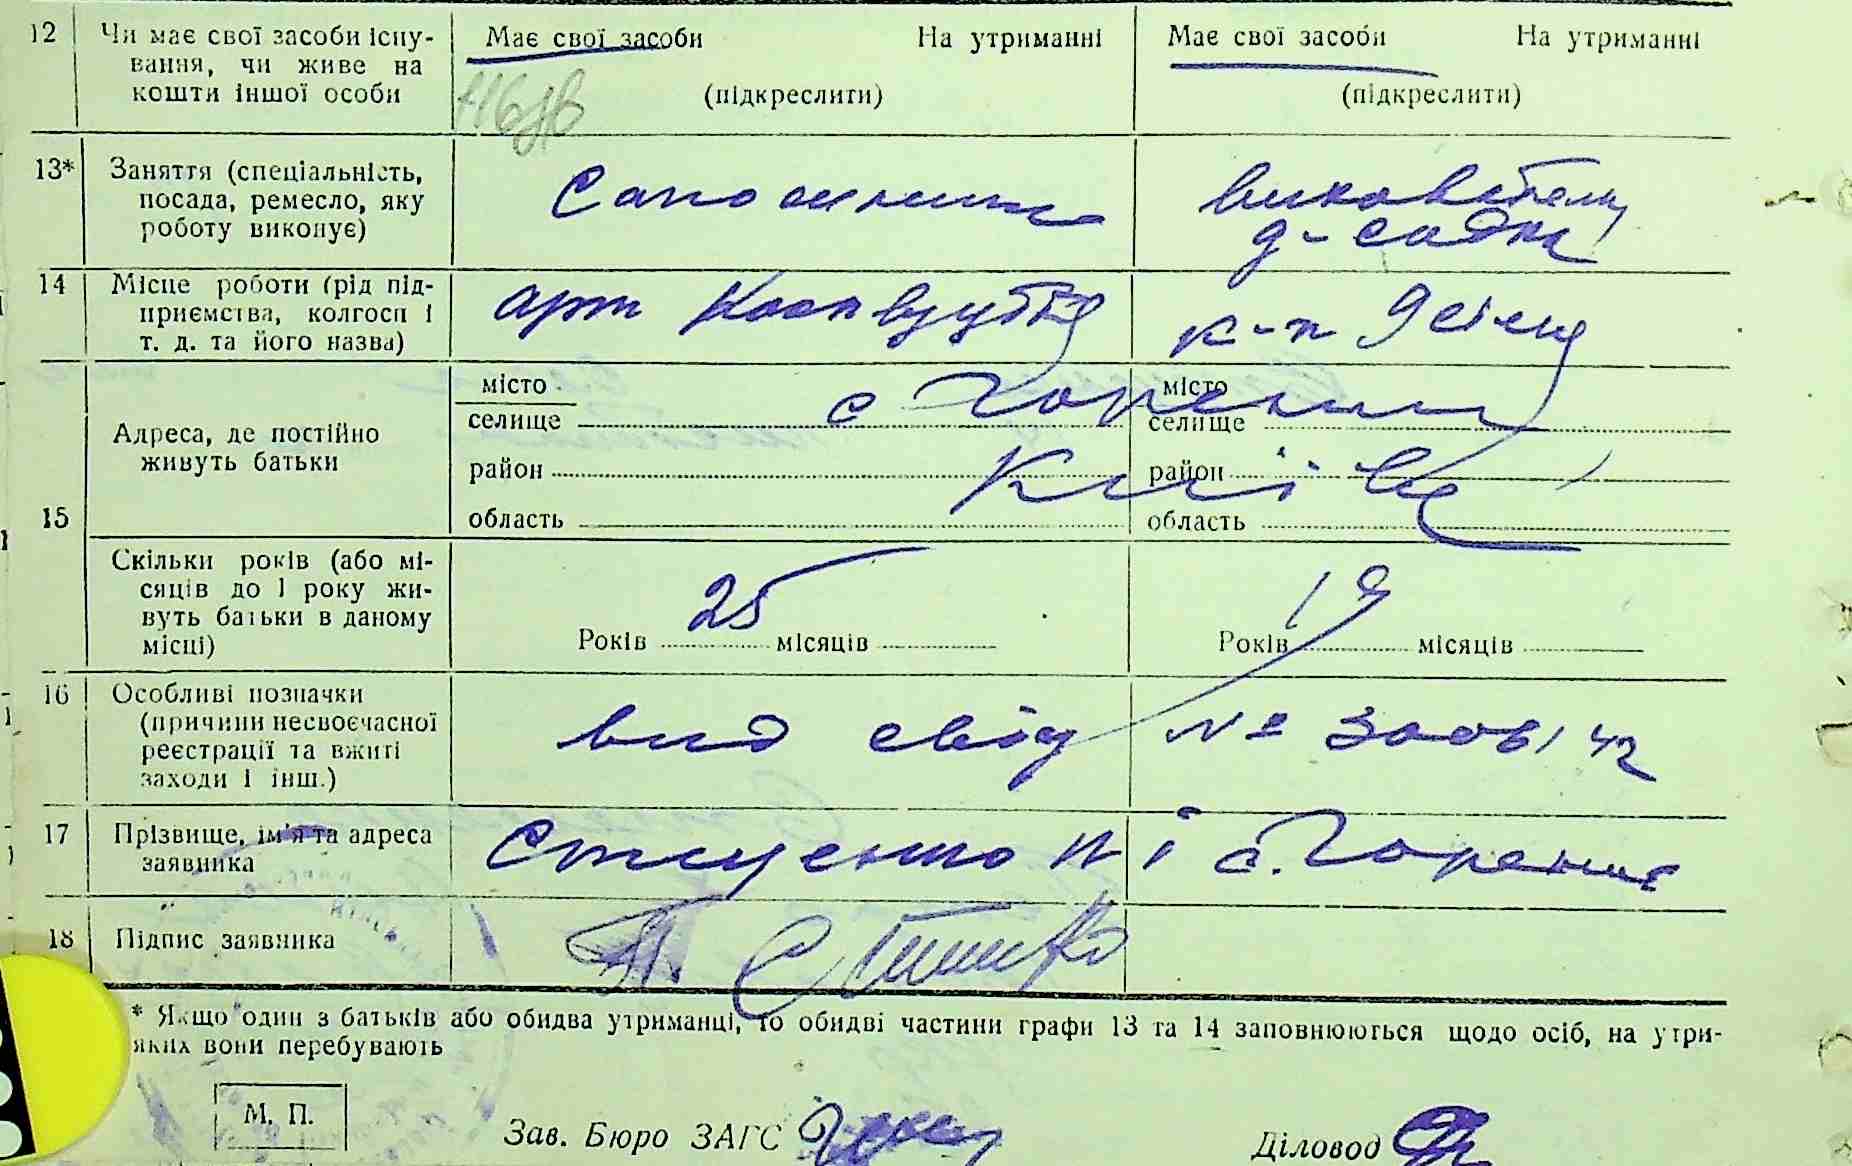 12 Чи має свої засоби існу-
вання, чи живе на
кошти іншої особи
Має свої засоби На утриманні
(підкреслити)
Має свої засоби На утриманні
(підкреслити)
13* Заняття (спеціальність,
посада, ремесло, яку
роботу виконує)
Сапожник
вихователь
д-садка
14 Місце роботи (рід під-
приємства, колгосп і
т. д. та його назва)
арт Коопвзуття
к-п
15 Адреса, де постійно
живуть батьки
місто
селище
район
область
місто
селище
район
область
с Гореничі
Київс
Скільки років (або мі-
сяців до 1 року жи-
вуть батьки в даному
місці)
Років 25 місяців
Років 19 місяців
16 Особливі позначки
(причини несвоєчасної
реєстрації та вжиті
заходи і інш.)
вид свід № 300
17 Прізвище, ім'я та адреса
заявника
Стценко П і с. Гореничі
18 Підпис заявника
* Якщо один з батьків або обидва утриманці, то обидві частини графи 13 та 14 заповнюються щодо осіб, на утри-
яких вони перебувають
М. П.
Зав. Бюро ЗАГС
Діловод